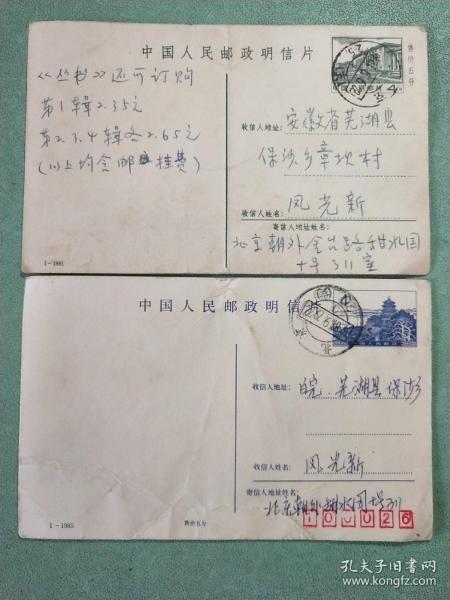 中国人民邮政明信片
售价五分
《丛书》还可订购
第1辑2.35元
第2.3.4辑各2.65元
(以上均含邮挂费)
收信人地址:
安徽省芜湖县
保沙乡章坝村
收信人姓名:
凤光新
寄信人地址姓名:
北京朝外金台路甜水园
十号311室
1-1981
中国人民邮政明信片
收信人地址:
皖.芜湖县保沙乡
收信人姓名:
凤光新
寄信人地址姓名:
1-1985
售价五分
100026
孔夫子旧书网
www.kongfz.com